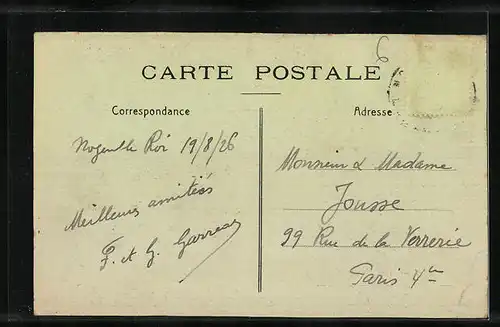 CARTE POSTALE
Correspondance
Adresse
Nogent le Roi 19/8/26
Meilleurs amitiés
F. et G. Garreau
Monsieur & Madame
Jousse
99 Rue de la Verrerie
Paris 4e